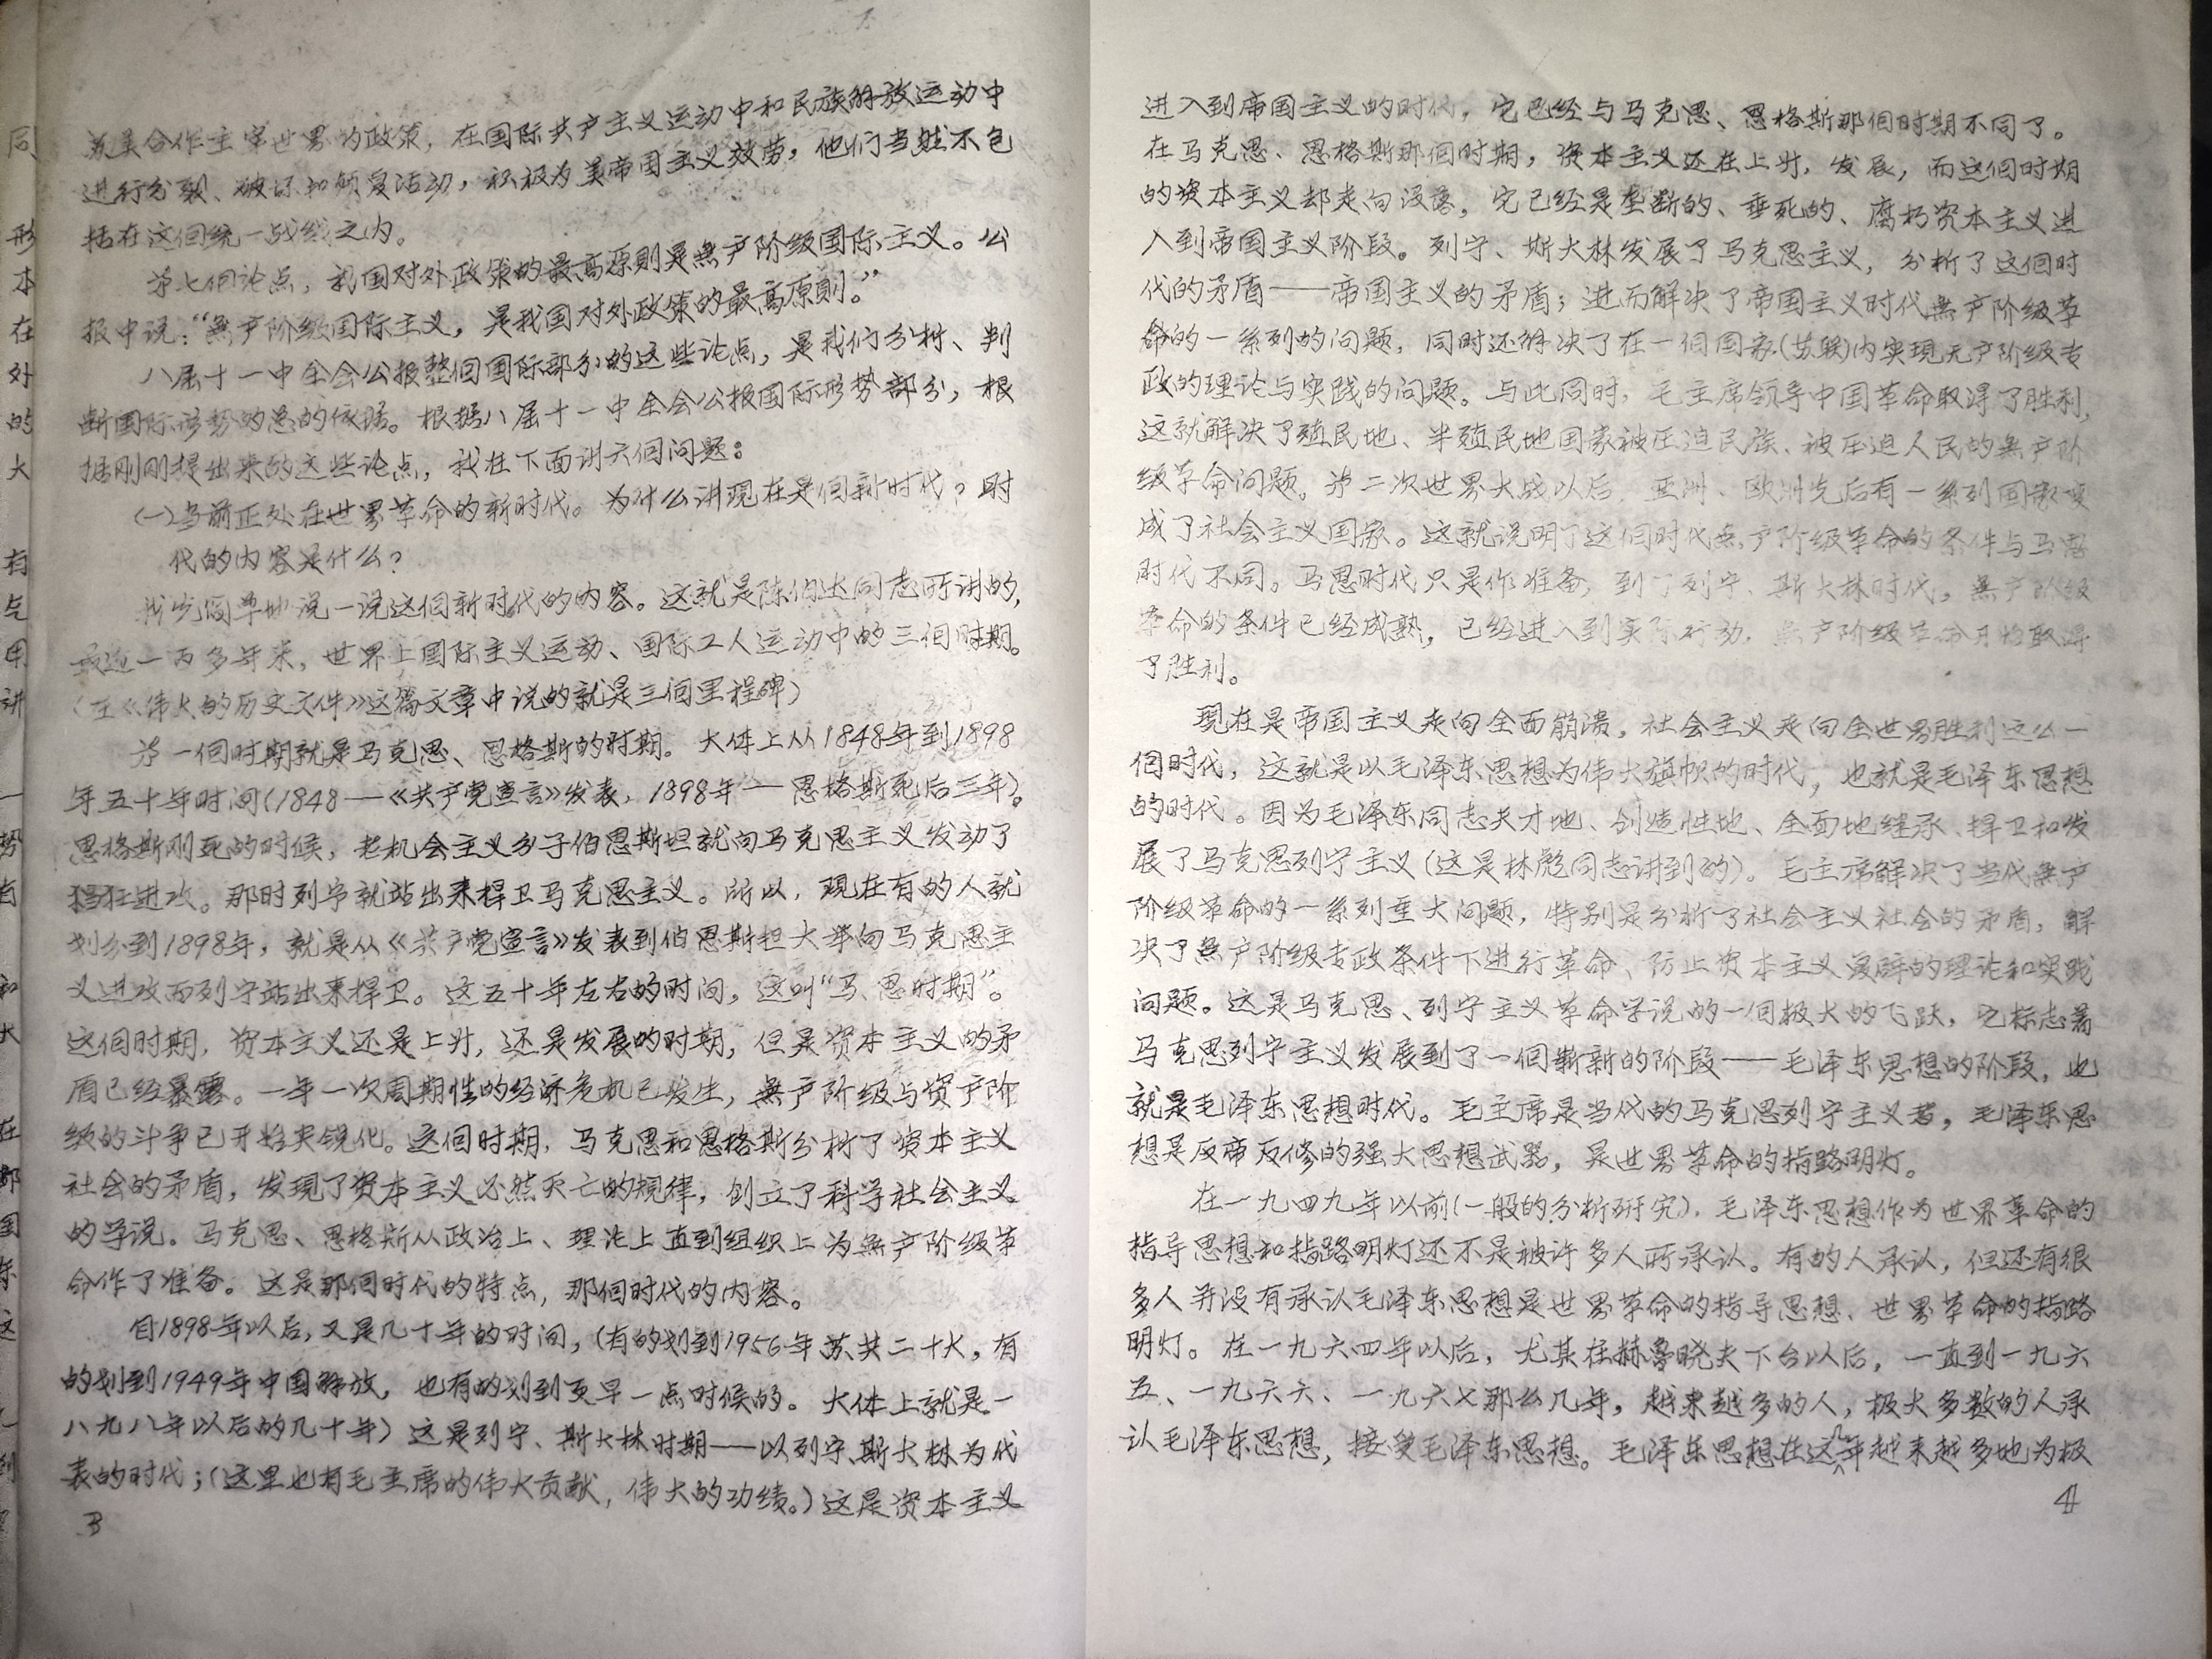 苏美合作主宰世界的政策，在国际共产主义运动中和民族解放运动中
进行分裂、破坏和颠复活动，积极为美帝国主义效劳，他们当然不包
括在这個统一战线之内。
第七個论点，我国对外政策的最高原则是無产阶级国际主义。公
报中说：“無产阶级国际主义，是我国对外政策的最高原则。”
八届十一中全会公报整個国际部分的这些论点，是我们分析、判
断国际形势的总的依据。根据八届十一中全会公报国际形势部分，根
据刚刚提出来的这些论点，我在下面讲六個问题：
(一)当前正处在世界革命的新时代。为什么讲现在是個新时代？时
代的内容是什么？
我先简单地说一说这個新时代的内容。这就是陈伯达同志所讲的，
最近一百多年来，世界上国际主义运动、国际工人运动中的三個时期。
（在《伟大的历史文件》这篇文章中说的就是三個里程碑）
第一個时期就是马克思、恩格斯的时期。大体上从1848年到1898
年五十年时间(1848——《共产党宣言》发表，1898年——恩格斯死后三年)。
恩格斯刚死的时候，老机会主义分子伯恩斯坦就向马克思主义发动了
猖狂进攻。那时列宁就站出来捍卫马克思主义。所以，现在有的人就
划分到1898年，就是从《共产党宣言》发表到伯恩斯坦大举向马克思主
义进攻而列宁站出来捍卫。这五十年左右的时间，这叫“马、恩时期”。
这個时期，资本主义还是上升，还是发展的时期，但是资本主义的矛
盾已经暴露。一年一次周期性的经济危机已发生，無产阶级与资产阶
级的斗争已开始尖锐化。这個时期，马克思和恩格斯分析了资本主义
社会的矛盾，发现了资本主义必然灭亡的规律，创立了科学社会主义
的学说。马克思、恩格斯从政治上、理论上直到组织上为無产阶级革
命作了准备。这是那個时代的特点，那個时代的内容。
自1898年以后，又是几十年的时间，(有的划到1956年苏共二十大，有
的划到1949年中国解放，也有的划到更早一点时候的。大体上就是一
八九八年以后的几十年）这是列宁、斯大林时期——以列宁、斯大林为代
表的时代；(这里也有毛主席的伟大贡献，伟大的功绩。）这是资本主义
3
进入到帝国主义的时代，它已经与马克思、恩格斯那個时期不同了。
在马克思、恩格斯那個时期，资本主义还在上升，发展，而这個时期
的资本主义却走向没落，它已经是垄断的、垂死的、腐朽资本主义进
入到帝国主义阶段。列宁、斯大林发展了马克思主义，分析了这個时
代的矛盾——帝国主义的矛盾；进而解决了帝国主义时代無产阶级革
命的一系列的问题，同时还解决了在一個国家(苏联)内实现无产阶级专
政的理论与实践的问题。与此同时，毛主席领导中国革命取得了胜利，
这就解决了殖民地、半殖民地国家被压迫民族、被压迫人民的無产阶
级革命问题。第二次世界大战以后，亚洲、欧洲先后有一系列国家变
成了社会主义国家。这就说明了这個时代無产阶级革命的条件与马恩
时代不同。马恩时代只是作准备，到了列宁、斯大林时代，無产阶级
革命的条件已经成熟，已经进入到实际行动，無产阶级革命开始取得
了胜利。
现在是帝国主义走向全面崩溃，社会主义走向全世界胜利这么一
個时代，这就是以毛泽东思想为伟大旗帜的时代，也就是毛泽东思想
的时代。因为毛泽东同志天才地、创造性地、全面地继承、捍卫和发
展了马克思列宁主义(这是林彪同志讲到的)。毛主席解决了当代無产
阶级革命的一系列重大问题，特别是分析了社会主义社会的矛盾，解
决了無产阶级专政条件下进行革命、防止资本主义复辟的理论和实践
问题。这是马克思、列宁主义革命学说的一個极大的飞跃，它标志着
马克思列宁主义发展到了一個崭新的阶段——毛泽东思想的阶段，也
就是毛泽东思想时代。毛主席是当代的马克思列宁主义者，毛泽东思
想是反帝反修的强大思想武器，是世界革命的指路明灯。
在一九四九年以前(一般的分析研究)，毛泽东思想作为世界革命的
指导思想和指路明灯还不是被许多人所承认。有的人承认，但还有很
多人并没有承认毛泽东思想是世界革命的指导思想、世界革命的指路
明灯。在一九六四年以后，尤其在赫鲁晓夫下台以后，一直到一九六
五、一九六六、一九六七那么几年，越来越多的人，极大多数的人承
认毛泽东思想，接受毛泽东思想。毛泽东思想在这几年越来越多地为极
4